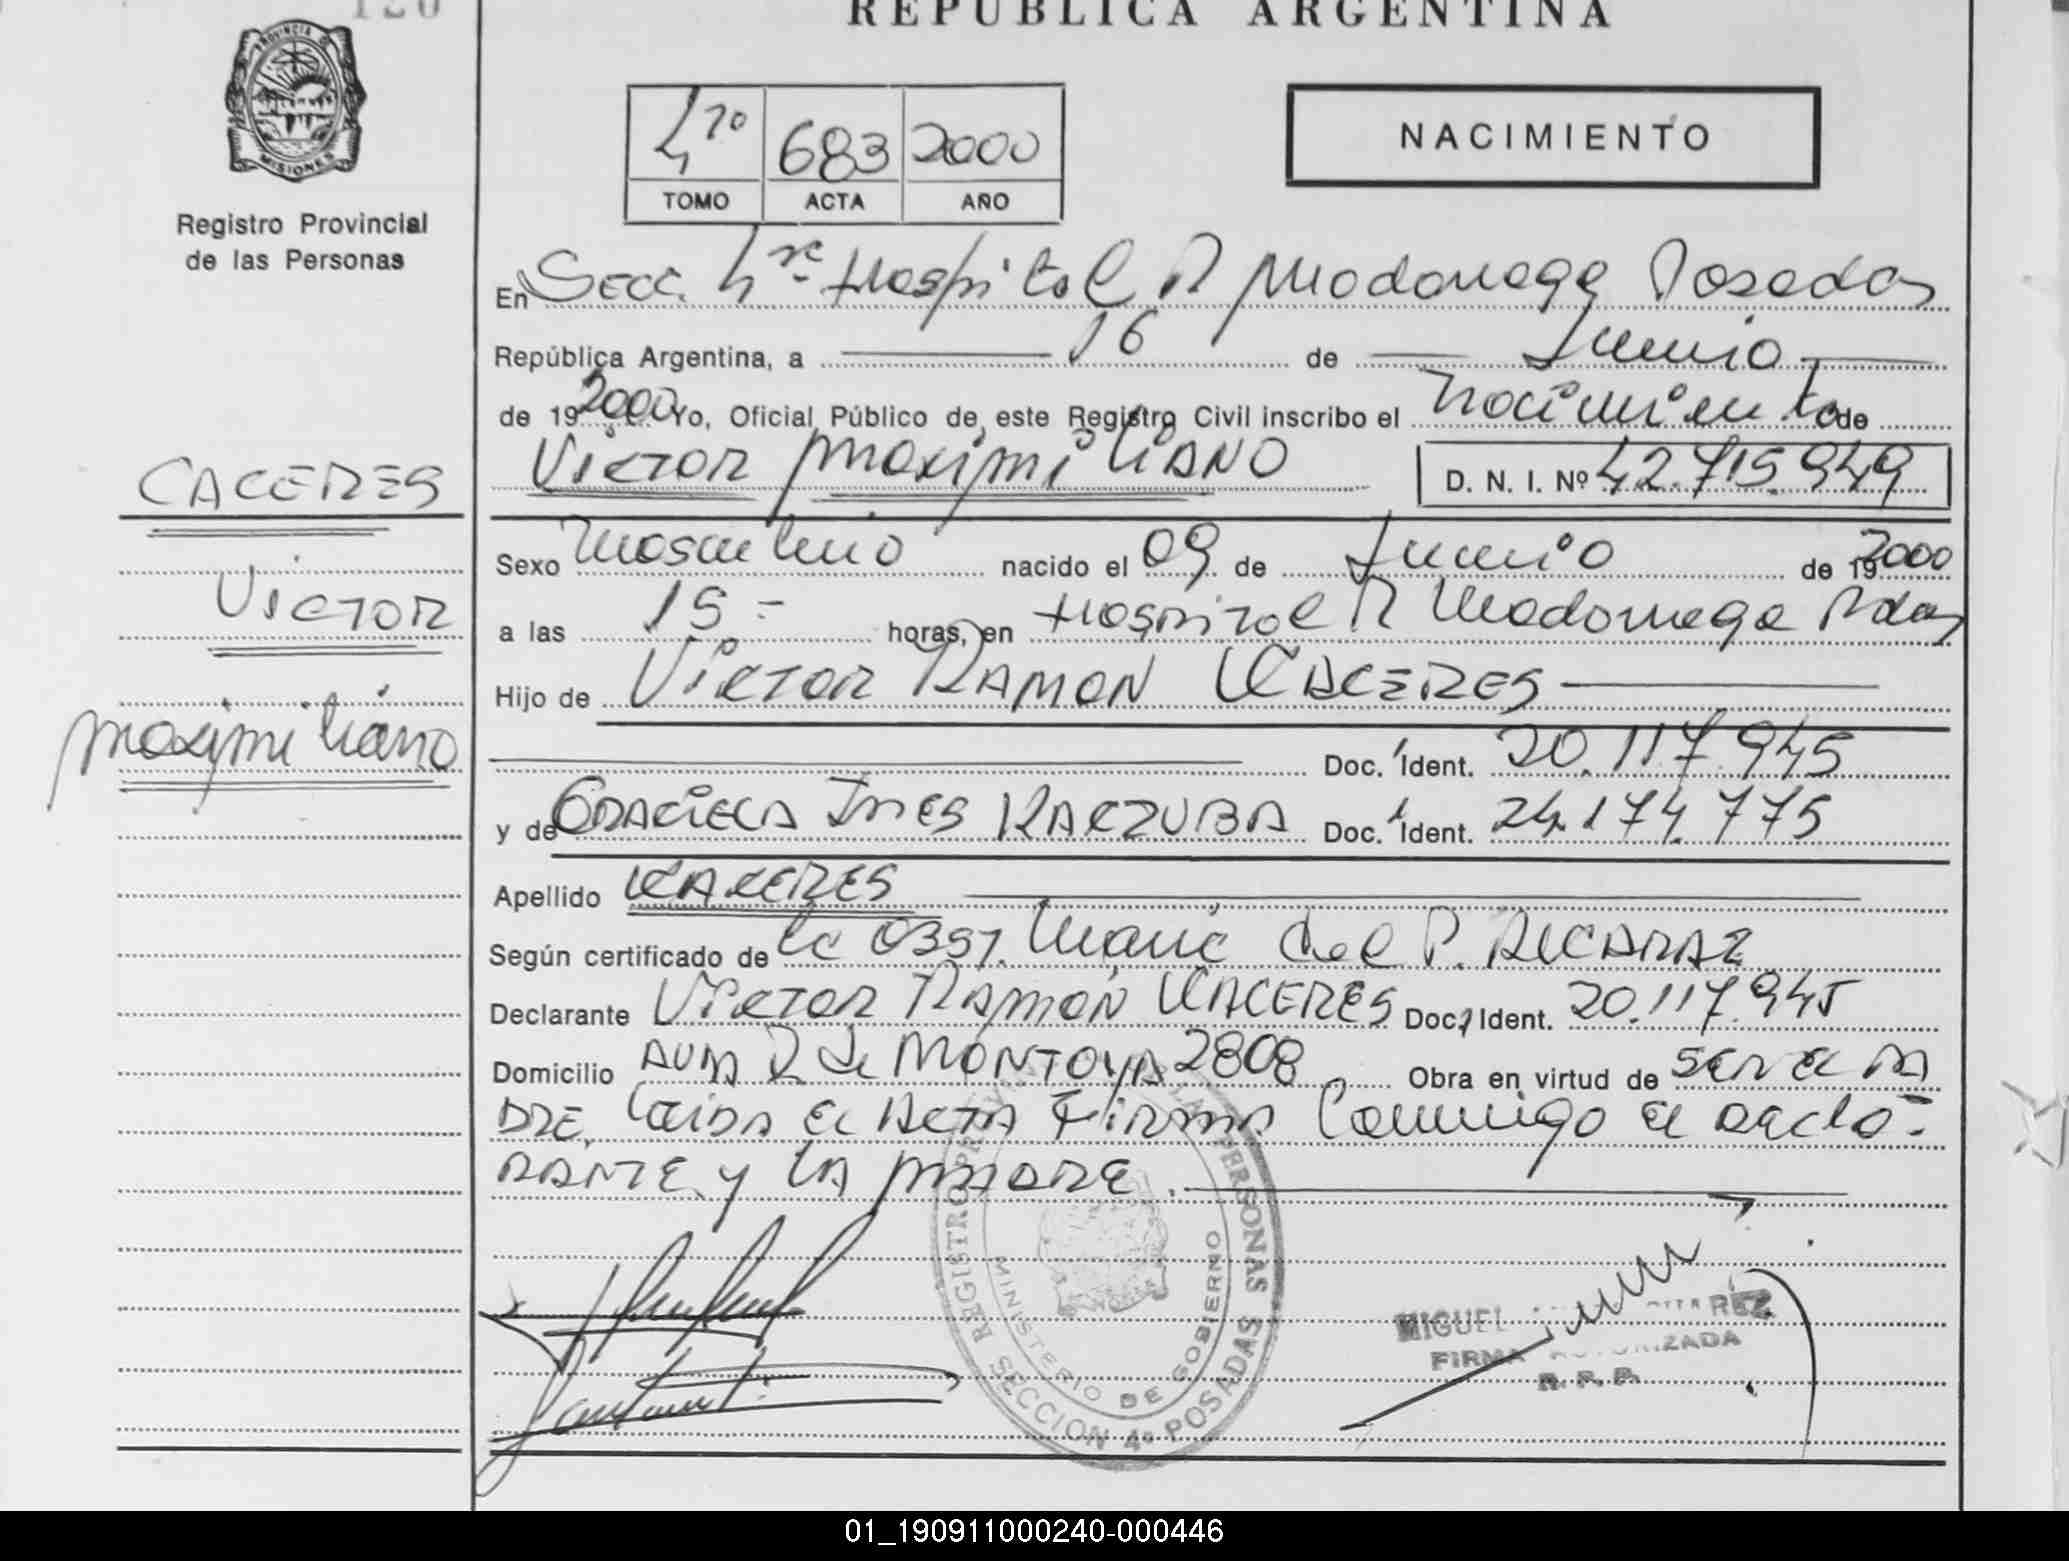 REPUBLICA ARGENTINA
PROVINCIA DE
MISIONES
Registro Provincial
de las Personas
4to 683 2000
TOMO ACTA AÑO
NACIMIENTO
En Secc. 4ta Hospital R Madariaga Posadas
República Argentina, a 16 de Junio
de 19 2000 Yo, Oficial Público de este Registro Civil inscribo el nacimiento de
VICTOR MAXIMILIANO D. N. I. Nº 42.715.949
CACERES
VICTOR
MAXIMILIANO
Sexo Masculino nacido el 09 de Junio de 19 2000
a las 15 - horas, en Hospital R Madariaga Pdas
Hijo de VICTOR RAMON CACERES
Doc. Ident. 20.117.945
y de GRACIELA INES KACZUBA Doc. Ident. 24.174.775
Apellido CACERES
Según certificado de la OBST. Maria del P. ALCARAZ
Declarante VICTOR RAMON CACERES Doc. Ident. 20.117.945
Domicilio AVDA R de MONTOYA 2808 Obra en virtud de SER EL PA
DRE. Leida el ACTA FIRMA Conmigo el decla-
RANTE y LA MADRE.
REGISTRO PERSONAS
MINISTERIO DE GOBIERNO
SECCION 4ª POSADAS
MIGUEL
FIRMA AUTORIZADA
R. P. P.
01_190911000240-000446